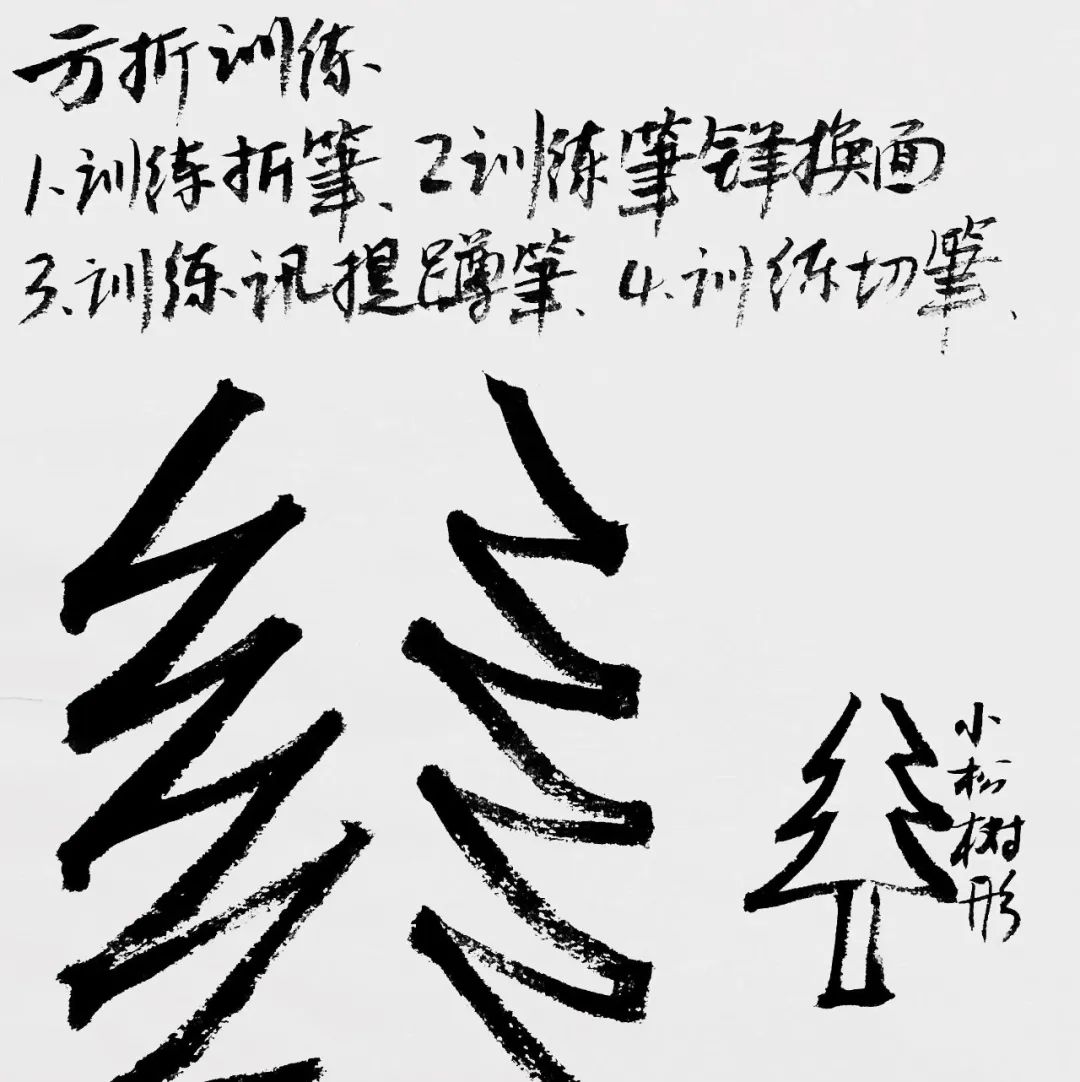 方折训练、
1、训练折筆、2训练筆锋换面
3、训练讯提蹲筆、4、训练切筆、
小松树形